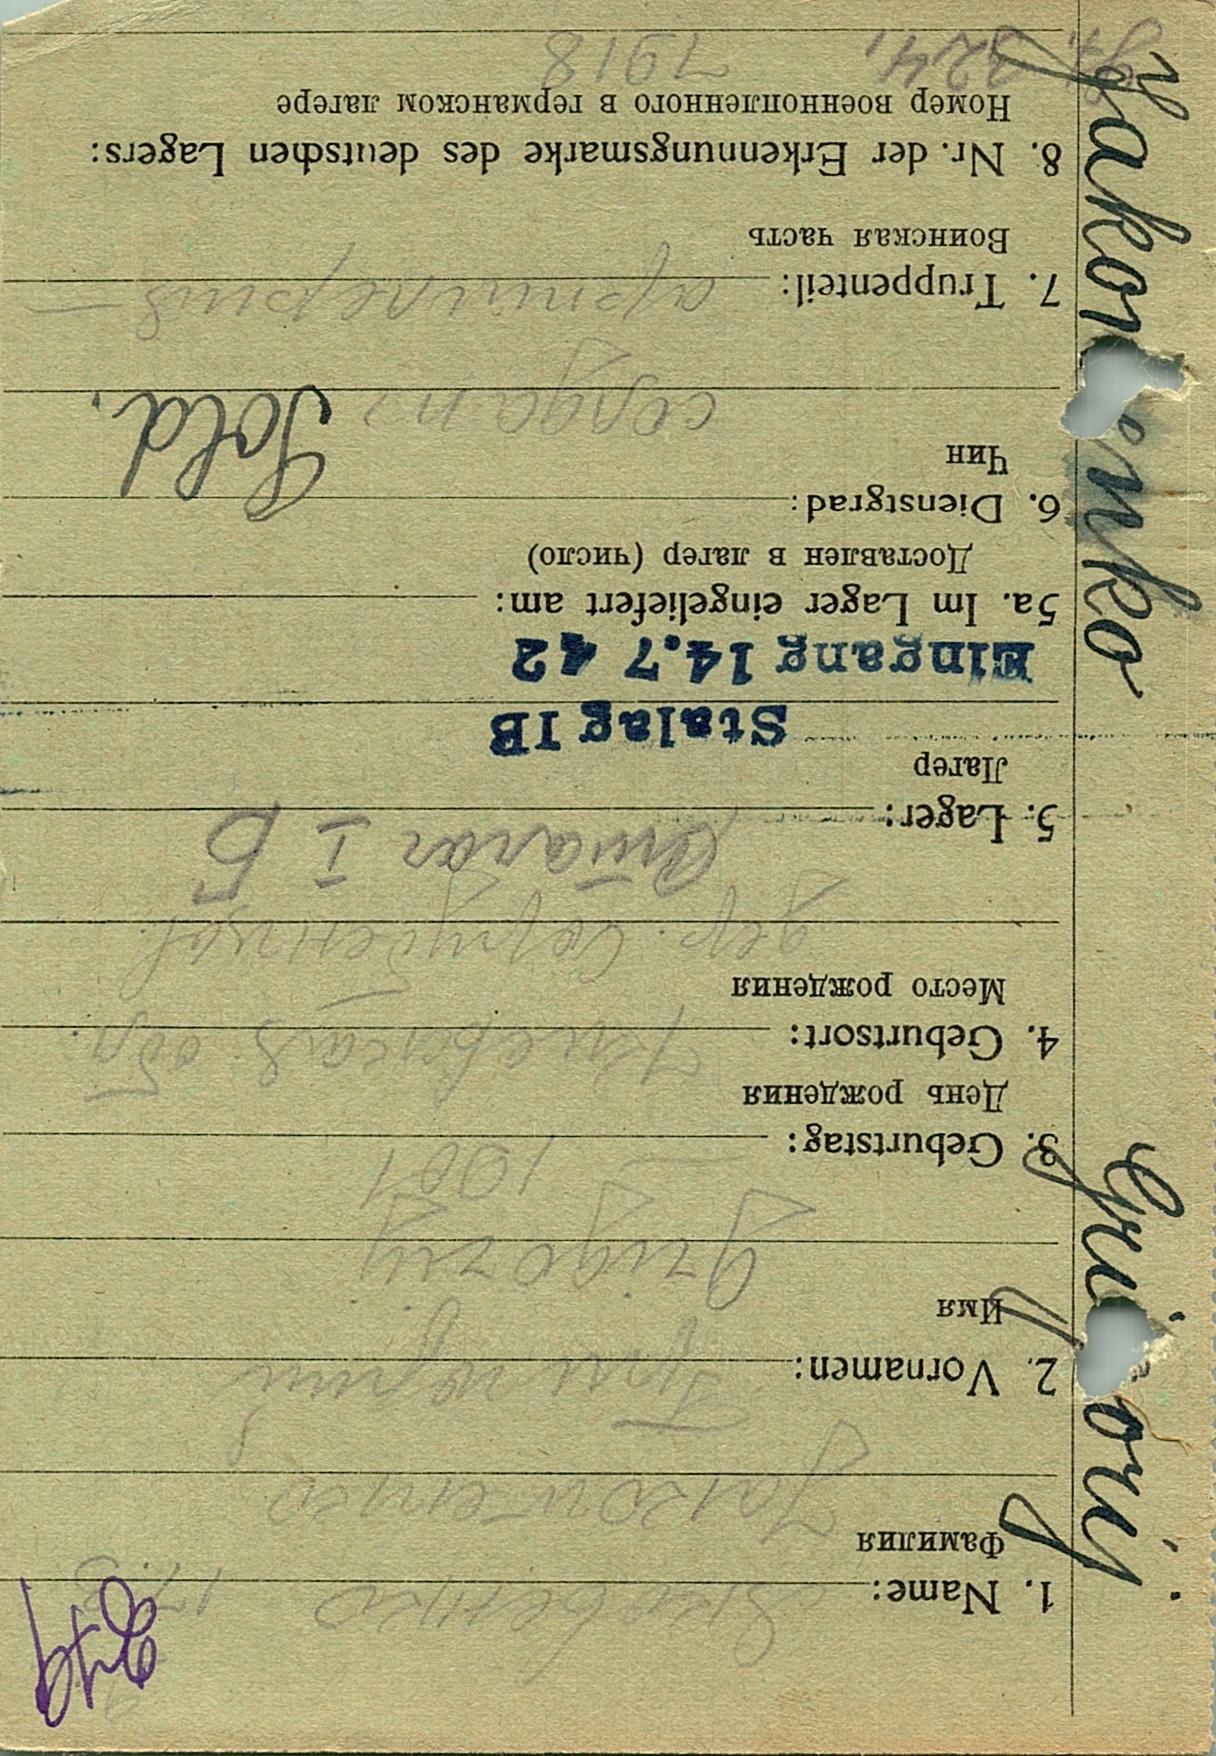 Jakowenko Grigorij.
1. Name: Яковенко
Фамилия
Jakowenko
2. Vornamen: Григорий
Имя
Grigorij
3. Geburtstag: 1901
День рождения
4. Geburtsort: Киевская обл.
Место рождения
дер.
5. Lager: Шталаг I Б
Лагер
Stalag IB
Eingang 14.7 42
5a. Im Lager eingeliefert am:
Доставлен в лагер (число)
6. Dienstgrad:
Чин
солдат Sold.
7. Truppenteil: артилерия
Воинская часть
8. Nr. der Erkennungsmarke des deutschen Lagers:
Номер военнопленного в германском лагере
7918